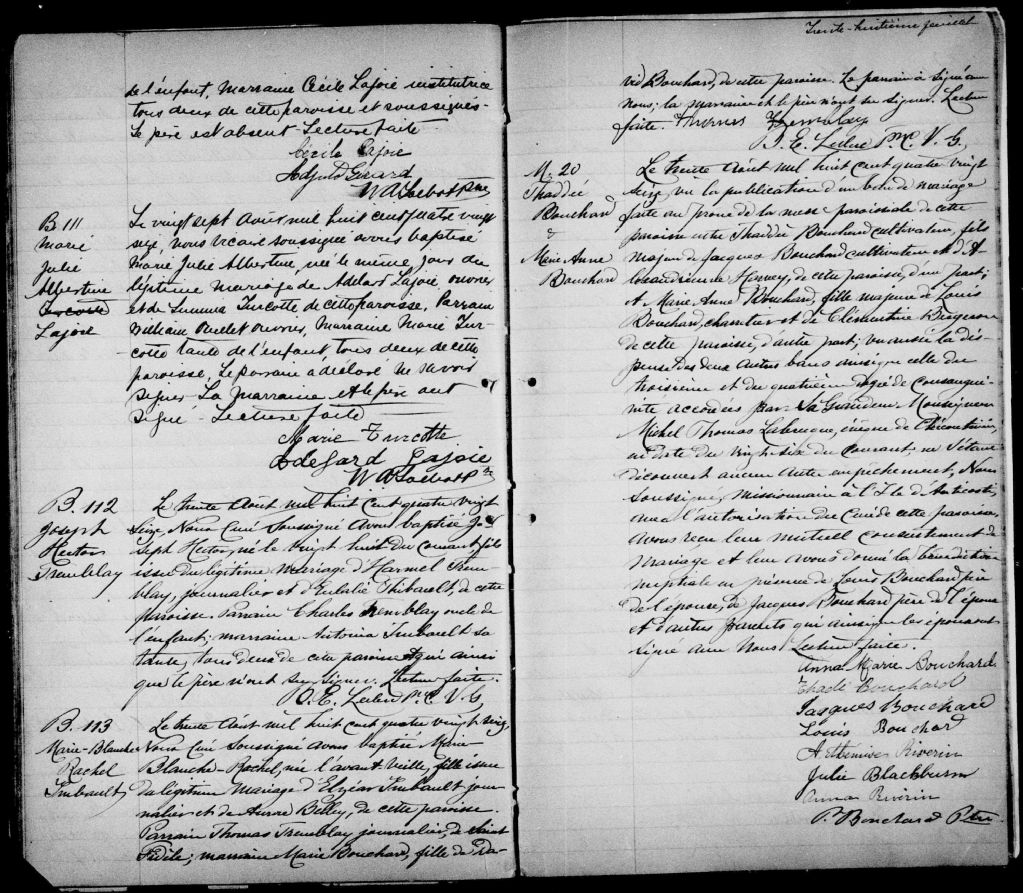 de l'enfant, Marraine Cécile Lajoie institutrice
tous deux de cette paroisse et soussignés-
Le père est absent - Lecture faite
Cécile Lajoie
Girard
W A Talbot Ptre
B 111
Marie
Julie
Albertine
Turcotte
Lajoie
Le vingt sept Août mil huit cent quatre vingt
seize, nous vicaire soussigné avons baptisé
Marie Julie Albertine, née le même jour du
légitime mariage de Adélard Lajoie, ouvrier
et de Turcotte de cette paroisse. Parrain
William Ouellet ouvrier, Marraine Marie Tur-
cotte tante de l'enfant, tous deux de cette
paroisse, Le parrain a déclaré ne savoir
signer La Marraine et le père ont
signé - Lecture faite
Marie Turcotte
Lajoie
W A Talbot Ptre
B. 112
Joseph
Hector
Tremblay
Le trente Août mil huit cent quatre vingt
seize, Nous Curé soussigné avons baptisé Jo-
seph Hector, né le vingt huit du courant, fils
issu du légitime mariage d'Harmel Trem-
blay, journalier et d'Eulalie Thibault, de cette
paroisse. Parrain Charles Tremblay oncle de
l'enfant; marraine Antonia Imbault sa
tante, tous deux de cette paroisse et qui ainsi
que le père n'ont su signer. Lecture faite.
O. E. Leclerc P. C. V. G
B. 113
Marie-Blanche
Rachel
Imbault
Le trente Août mil huit cent quatre vingt seize,
Nous Curé soussigné avons baptisé Marie-
Blanche-Rachel, née l'avant veille, fille issue
du légitime mariage d'Elzéar Imbault jour-
nalier et de Aurore Billy, de cette paroisse.
Parrain Thomas Tremblay journalier, de Saint
Fidèle; marraine Marie Bouchard, fille de Da-
Trente-huitième feuillet
vid Bouchard, de cette paroisse. Le parrain a signé avec
nous; la marraine et le père n'ont su signer. Lecture
faite. Thomas Tremblay
E. Leclerc P. C. V. G.
M. 20
Thaddée
Bouchard
&
Marie Anne
Bouchard
Le trente Août mil huit cent quatre vingt
seize, vu la publication d'un ban de mariage
faite au prône de la messe paroissiale de cette
paroisse entre Thaddée Bouchard cultivateur, fils
majeur de Jacques Bouchard cultivateur et d'A-
Harvey, de cette paroisse, d'une part;
et Marie Anne Bouchard, fille majeure de Louis
Bouchard, charretier et de Clémentine Bergeron
de cette paroisse, d'autre part; vu aussi la dis-
pense des deux autres bans ainsi que celle du
troisième et du quatrième degré de consangui-
nité accordées par Sa Grandeur Monseigneur
Michel Thomas Labrecque, évêque de Chicoutimi,
en date du vingt-six du courant; ne s'étant
découvert aucun autre empêchement, Nous
soussigné, Missionnaire à l'Ile d'Anticosti,
avec l'autorisation du Curé de cette paroisse,
avons reçu leur mutuel consentement de
mariage et leur avons donné la bénédiction
nuptiale en présence de Louis Bouchard père
de l'épouse, de Jacques Bouchard père de l'époux
et d'autres parents qui ainsi que les époux ont
signé avec Nous Lecture faite.
Anna Marie Bouchard
Thadé Bouchard
Jasques Bouchard
Louis Bouchard
Riverin
Julie Blackburn
Anna Riverin
P. Bouchard Ptre